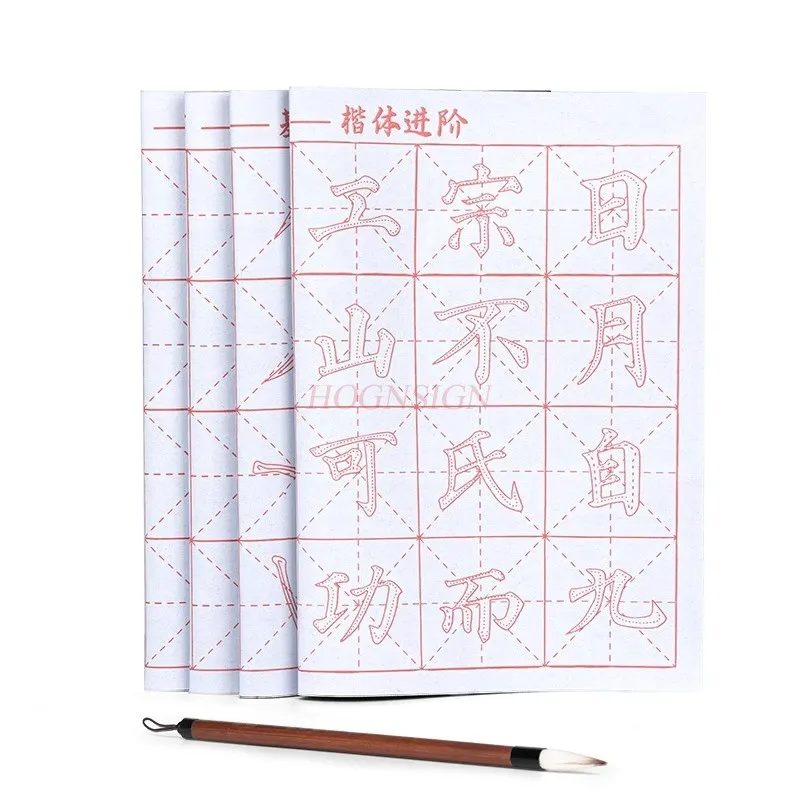 楷体进阶
工宗日
山不月
HOGNSIGN
可氏自
功而九